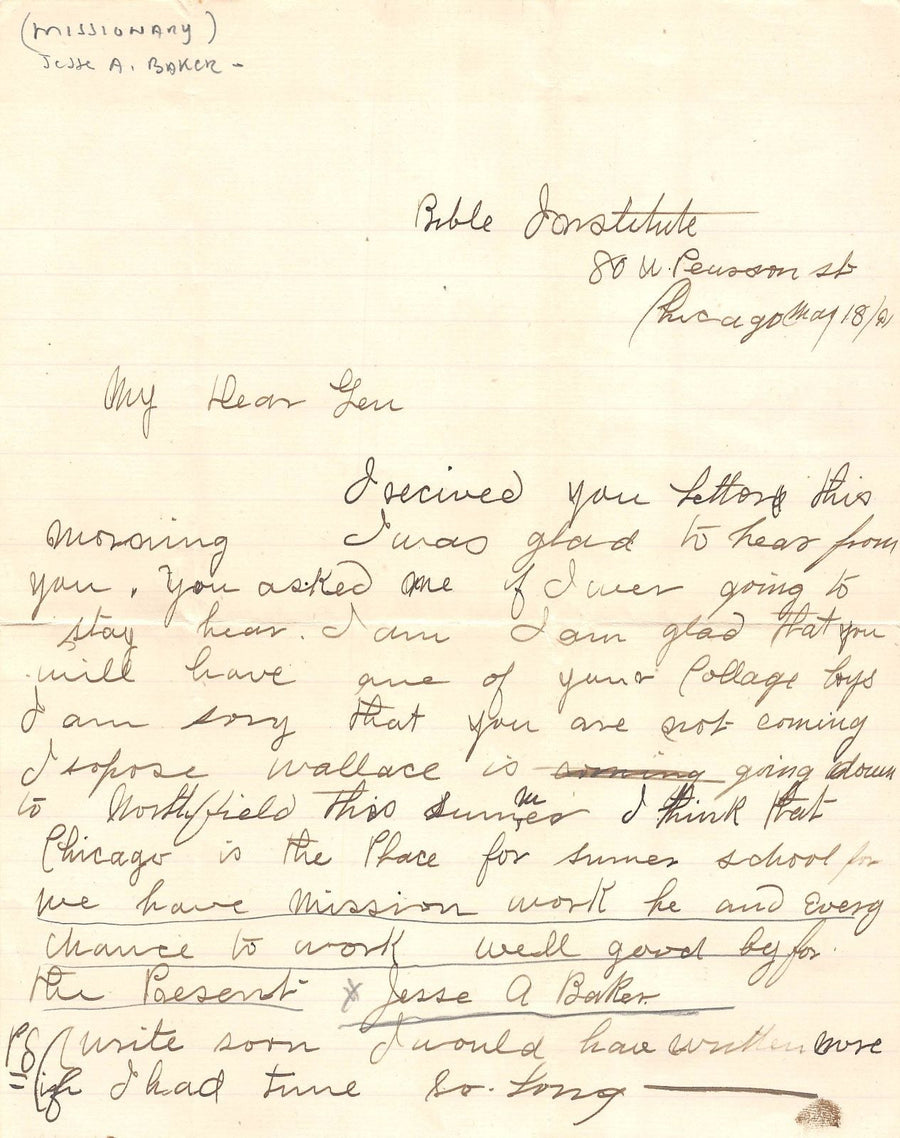 (MISSIONARY)
Jesse A. BAKER -
Bible Institute
80 W. Pearson st
Chicago May 18/
My Dear Geu
I recived you letter this
morning I was glad to hear from
you. You asked me if I wer going to
stay hear. I am I am glad that you
will have one of your Collage boys
I am sory that you are not coming
I sopose Wallace is coming going down
to Northfield this summer I think that
Chicago is the Place for sumer school for
we have Mission work he and Every
chance to work well good by for
the Present x Jesse A Baker
PS (write soon I would have written more
if I had time So-Long